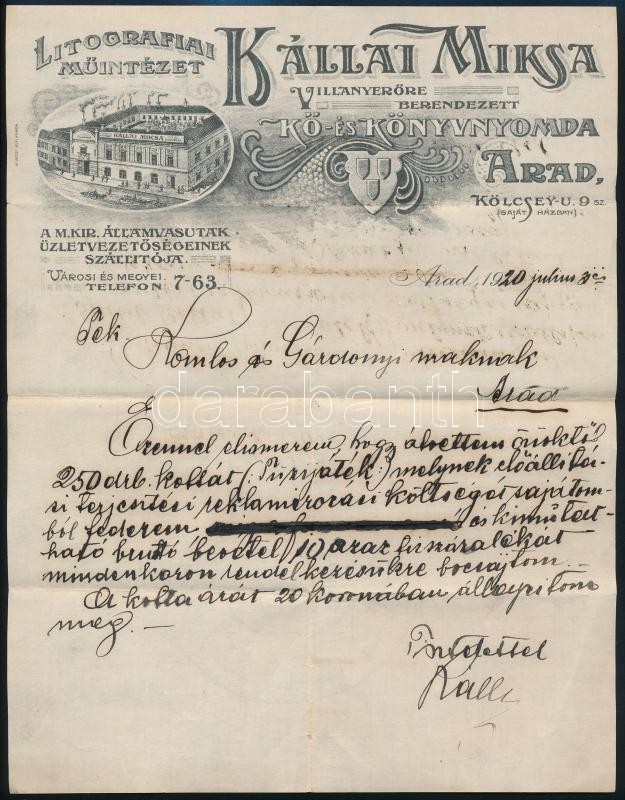 LITOGRAFIAI
MŰINTÉZET
KÁLLAI MIKSA
VILLANYERŐRE
BERENDEZETT
KŐ- ÉS KÖNYVNYOMDA
KÁLLAI MIKSA
ARAD,
KÖLCSEY-U. 9 SZ.
(SAJÁT HÁZBAN)
A M. KIR. ÁLLAMVASUTAK
ÜZLETVEZETŐSÉGEINEK
SZÁLLITÓJA.
VÁROSI ÉS MEGYEI
TELEFON 7-63.
Arad, 1920 julius
Komlos és Gárdonyi
Arad
Ezennel elismerem, hogy átvettem önöktől
250 drb. kottát (: Tüzijáték :) melynek előállitá-
si terjesztési költségét sajátom-
ból fedezem és kimutat-
ható bruttó bevétel 10 százalékát
mindenkoron rendelkezésükre bocsájtom. -
A kotta árát 20 koronában állapitom
meg. -
Tisztelettel
Káll
darabanth